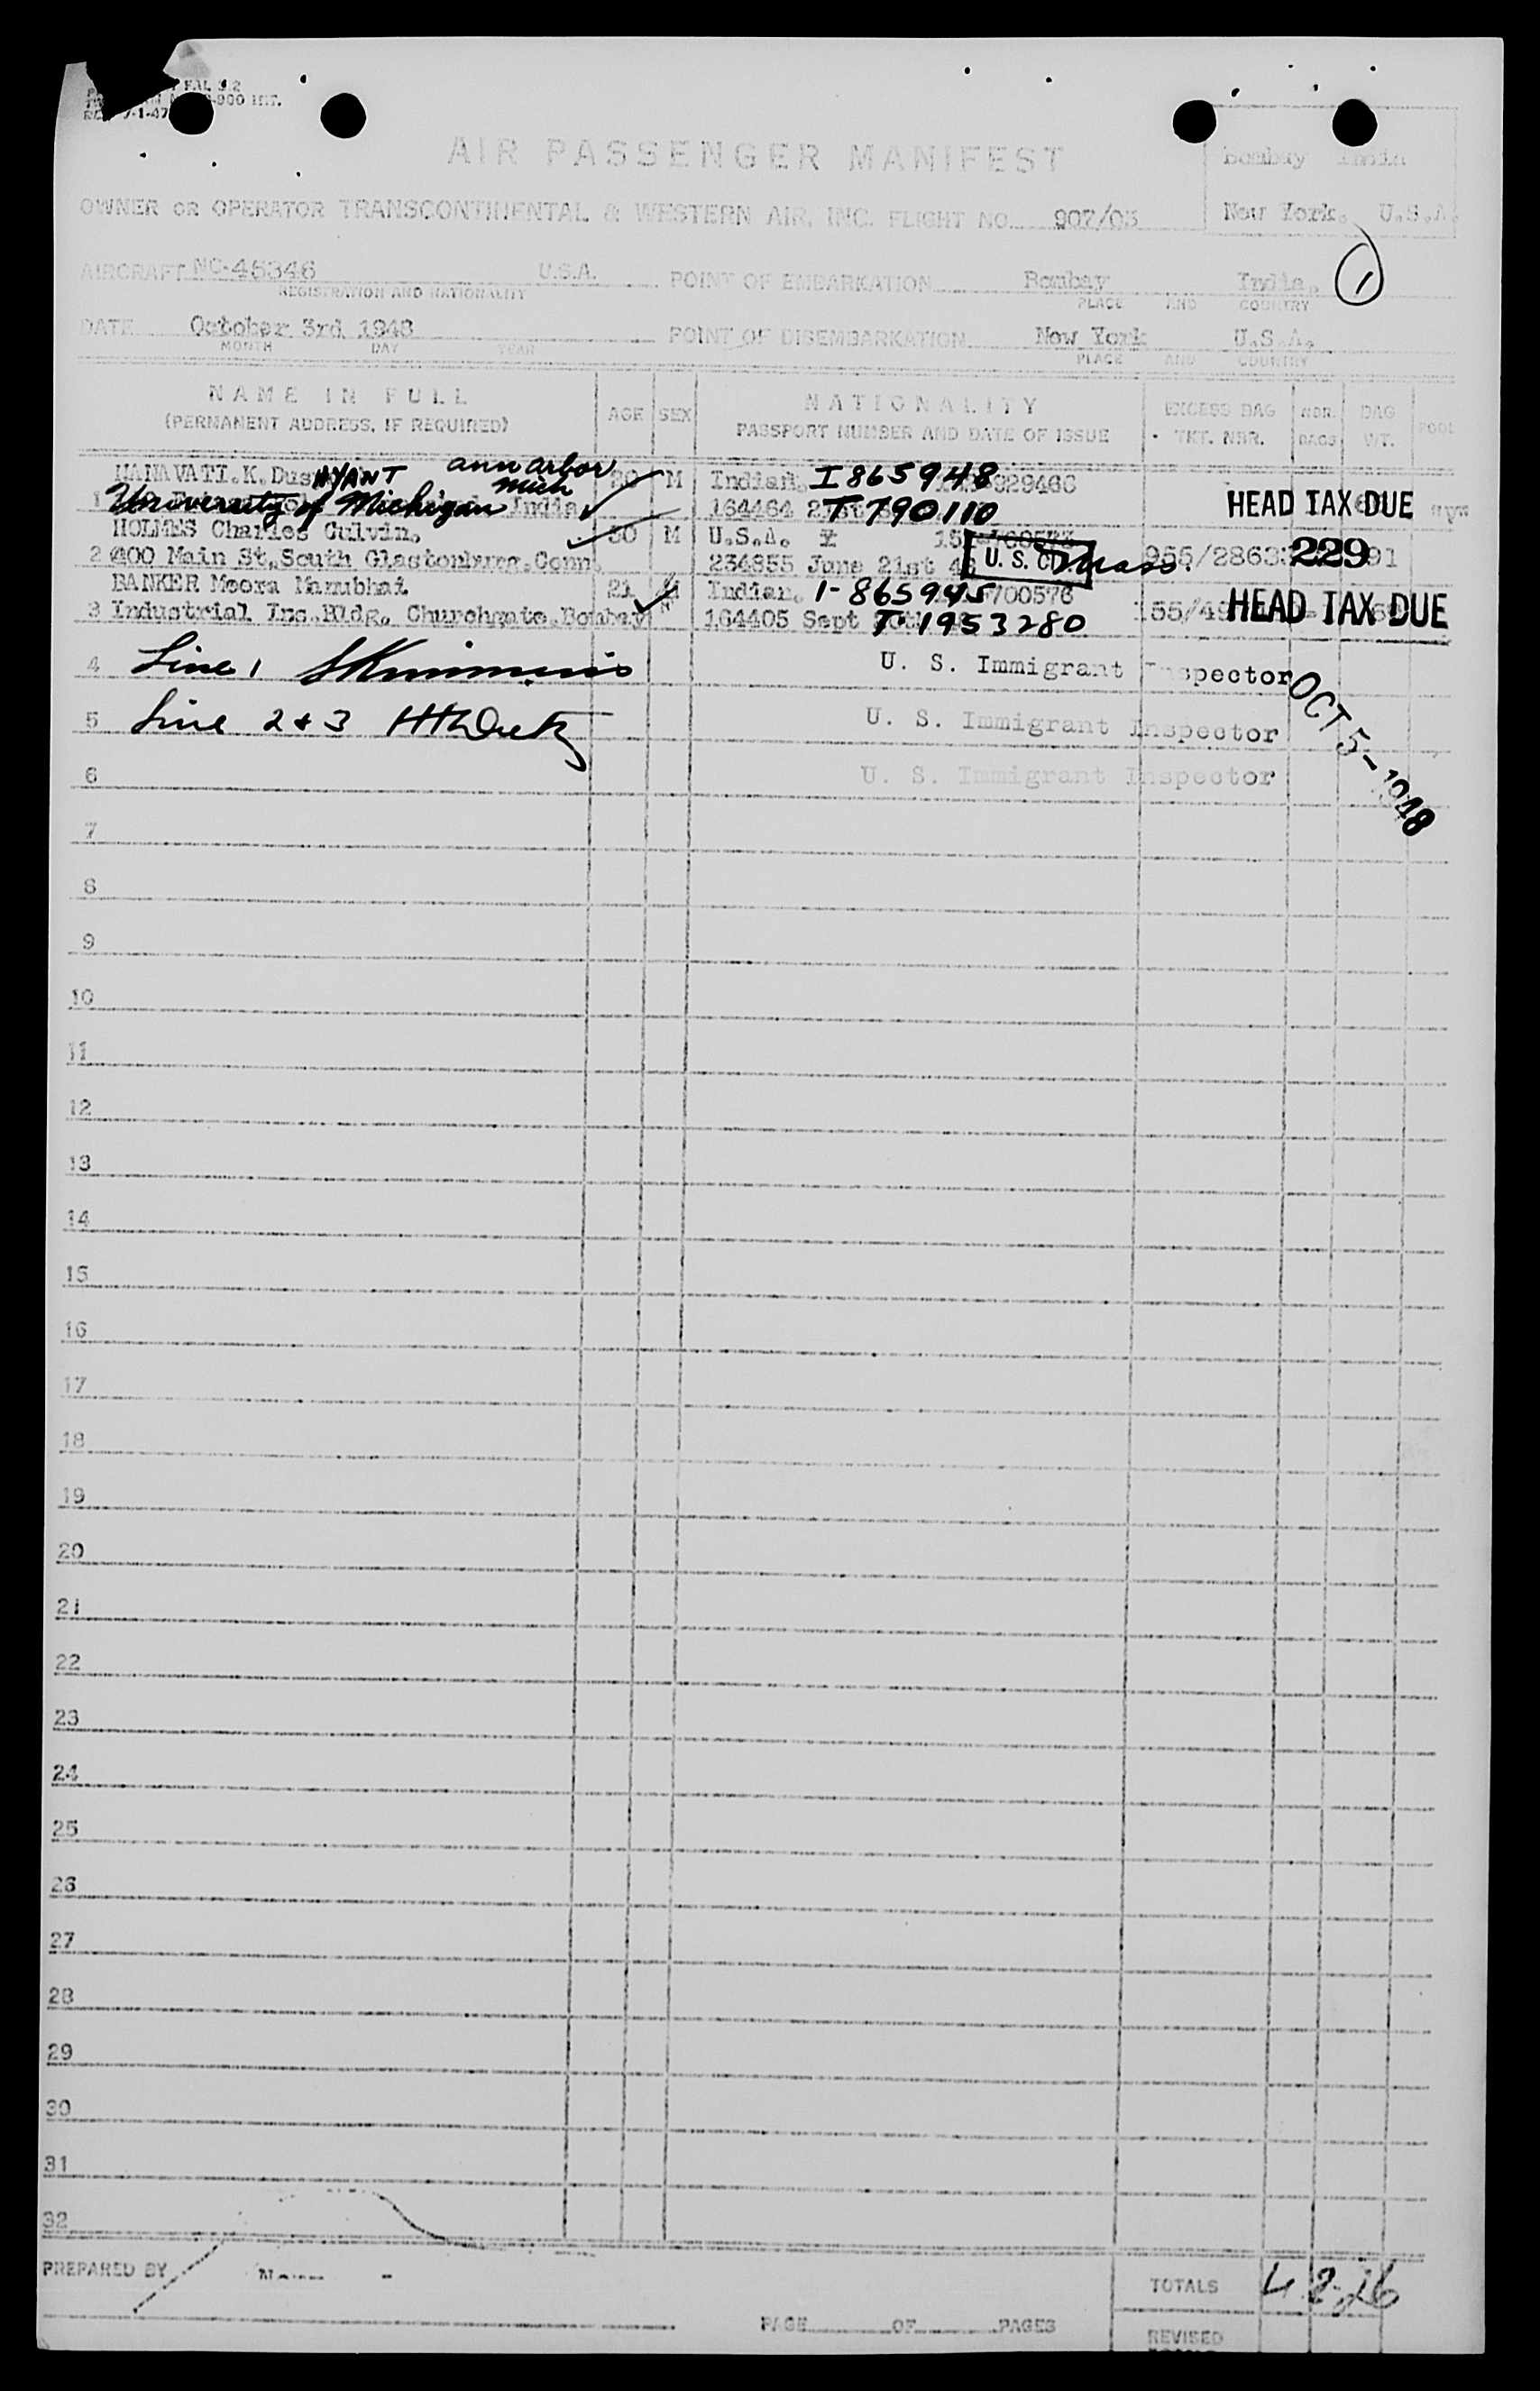 FAL 3.2
-900 INT.
7-1-47
AIR PASSENGER MANIFEST
Bombay India
New York. U.S.A.
OWNER OR OPERATOR TRANSCONTINENTAL & WESTERN AIR, INC. FLIGHT NO. 907/03
1
AIRCRAFT NC-45346 U.S.A. POINT OF EMBARKATION Bombay India.
REGISTRATION AND NATIONALITY PLACE AND COUNTRY
DATE October 3rd 1948 POINT OF DISEMBARKATION New York U.S.A.
MONTH DAY YEAR PLACE AND COUNTRY
NAME IN FULL AGE SEX NATIONALITY EXCESS BAG NBR. BAG POOL
(PERMANENT ADDRESS, IF REQUIRED) PASSPORT NUMBER AND DATE OF ISSUE TKT. NBR. BAGS WT.
NANAVATI.K.Dus HYANT ann arbor mich 20 M Indian. I 865948 929466
1 University of Michigan India 164464 T 790110 HEAD TAX DUE
HOLMES Charles Culvin. 30 M U.S.A.
2 400 Main St,South Glastonburg.Conn. 234855 June 21st U. S. C. Mass. 229 91
BANKER Meera Manubhai 21 Indian. 1-865945 700576
3 Industrial Ins.Bldg. Churchgate.Bombay 164405 Sept T. 1953280 HEAD TAX DUE
4 Line 1 U. S. Immigrant Inspector
OCT 5-1948
5 Line 2 & 3 U. S. Immigrant Inspector
6 U. S. Immigrant Inspector
7
8
9
10
11
12
13
14
15
16
17
18
19
20
21
22
23
24
25
26
27
28
29
30
31
32
PREPARED BY
TOTALS
PAGE OF PAGES
REVISED